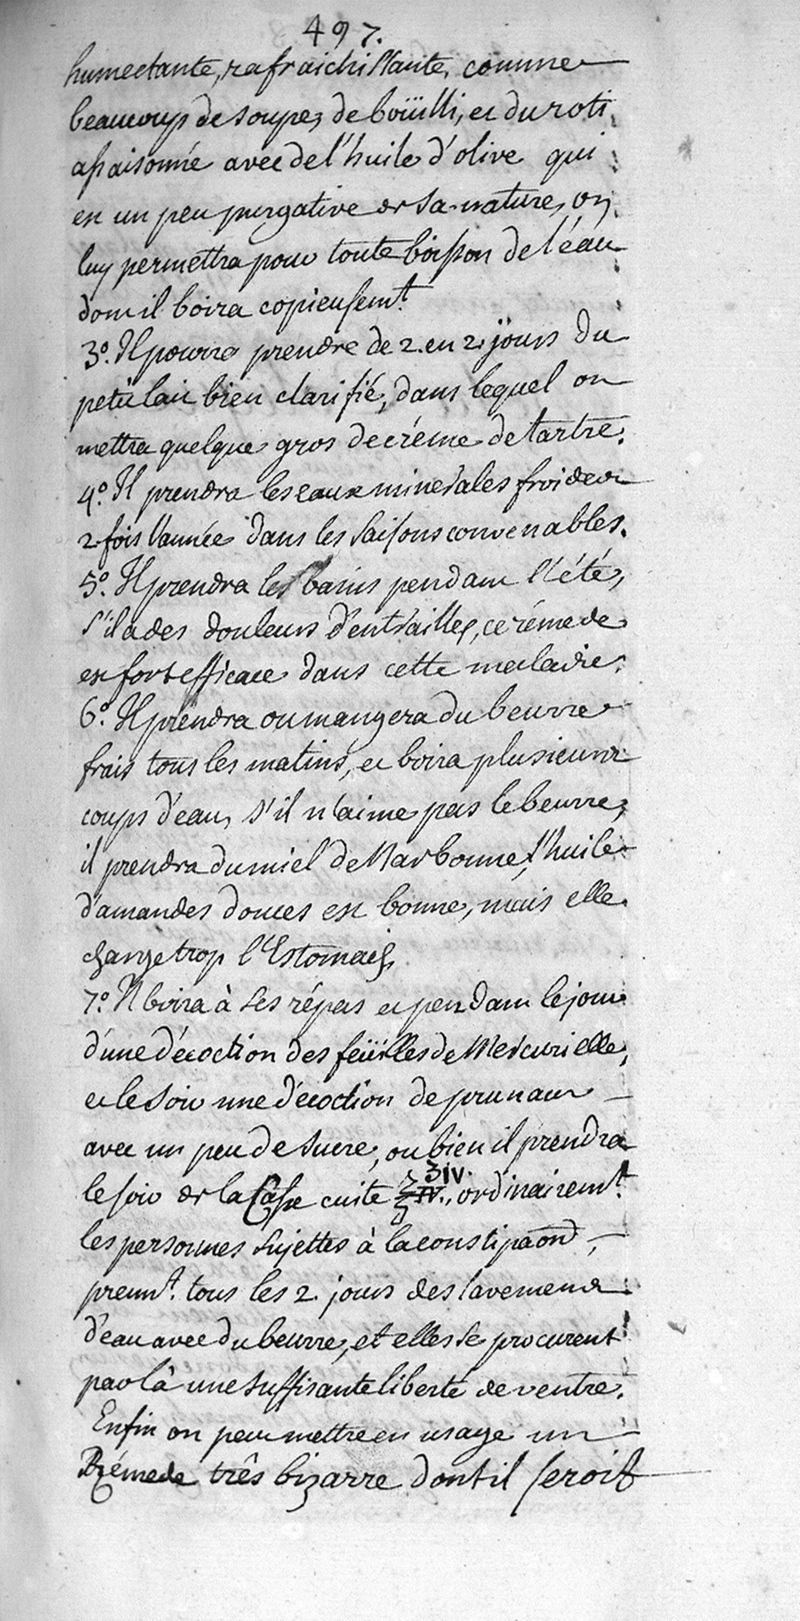 497.
humectante, rafraichissante, comme
beaucoup de soupes, de boüilli, et du roti
assaisonné avec de l'huile d'olive qui
est un peu purgative de sa nature, on
luy permettra pour toute boisson de l'éau
dont il boira copieusemt.
3°. Il pourra prendre de 2. en 2. jours du
petit lait bien clarifié, dans lequel on
mettra quelque gros de crême de tartre.
4°. Il prendra les eaux minerales froides
2 fois l'année dans les saisons convenables.
5°. Il prendra les bains pendant l'été,
s'il a des douleurs d'entrailles, ce rémede
est fort efficace dans cette maladie.
6°. Il prendra ou mangera du beurre
frais tous les matins, et boira plusieurs
coups d'eau, s'il n'aime pas le beurre,
il prendra du miel de Narbonne, l'huile
d'amandes douces est bonne, mais elle
charge trop l'Estomach.
7°. Il boira à ses répas et pendant le jour
d'une décoction des feüilles de Mercurielle,
et le soir une décoction de prunaux
avec un peu de sucre, ou bien il prendra
le soir de la Casse cuite ʒiv., ordinairemt.
les personnes sujettes à la constipaõn,
prennt. tous les 2. jours des lavemens
d'eau avec du beurre, et elles se procurent
par là une suffisante liberté de ventre.
Enfin on peut mettre en usage un
Rémede très bizarre dont il seroit